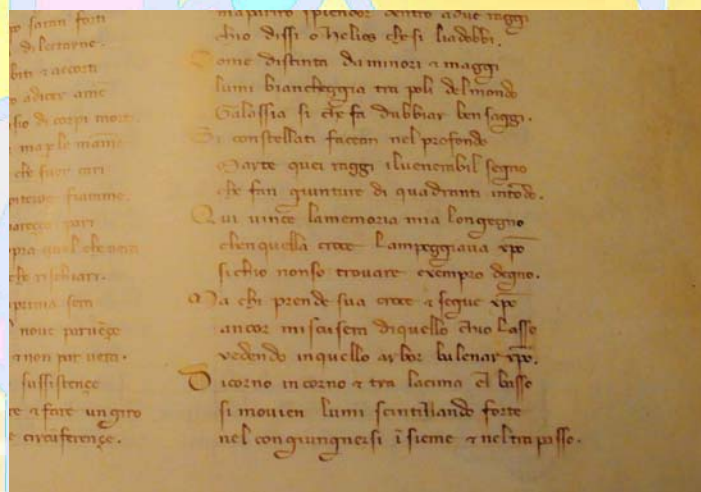 o saran forti
di lectarne.
biti ⁊ accorti
o dicer ame
sio di corpi morti.
ma p le mamme
che fuor cari
piterne fiamme.
pari
pra quel che vera
che rischiari.
prima sera
nove parvēze
⁊ non par vera.
sussistenze
re ⁊ fare un giro
e circūferenze.
maparito splendor dentro adue raggi
chio dissi o helios che si liadobbi.
Come distinta da minori ⁊ maggi
lumi biancheggia tra poli del mondo
Galassia si che fa dubbiar ben saggi.
Si constellati facean nel profondo
Marte quei raggi iluenerabil segno
che fan giunture di quadranti intōdo.
Qui vince lamemoria mia longegno
chenquella croce lampeggiaua xp̄o
sichio nonso trouare exempro degno.
Ma chi prende sua croce ⁊ segue xp̄o
ancor miscusera diquello chio lasso
vedendo inquello arbor balenar xp̄o.
Dicorno incorno ⁊ tra lacima el basso
si mouien lumi scintillando forte
nel congiungnersi īsieme ⁊ neltrapasso.